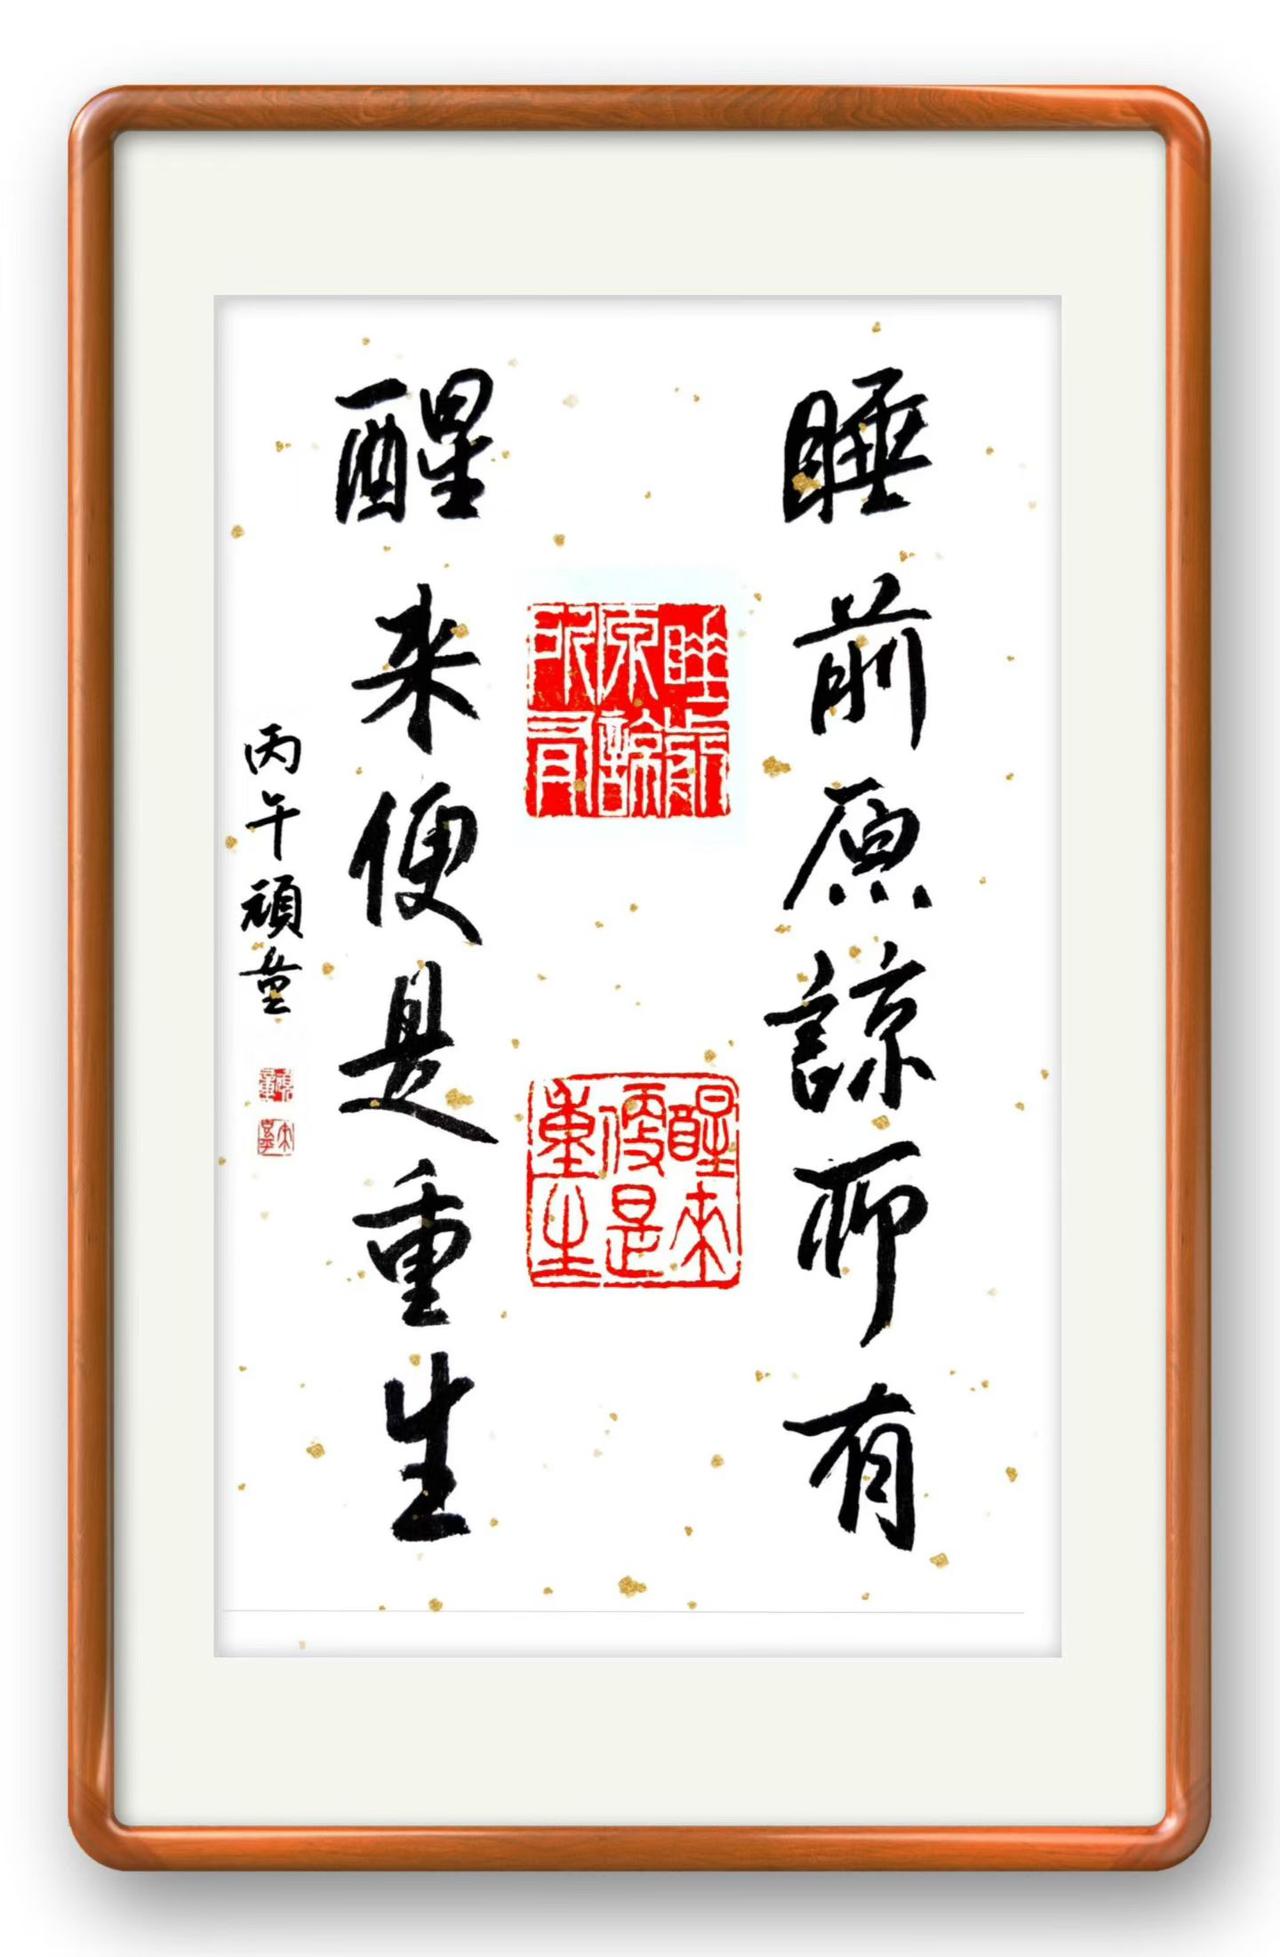 睡前原諒所有
睡前原諒所有
醒来便是重生
醒來便是重生
丙午頑童